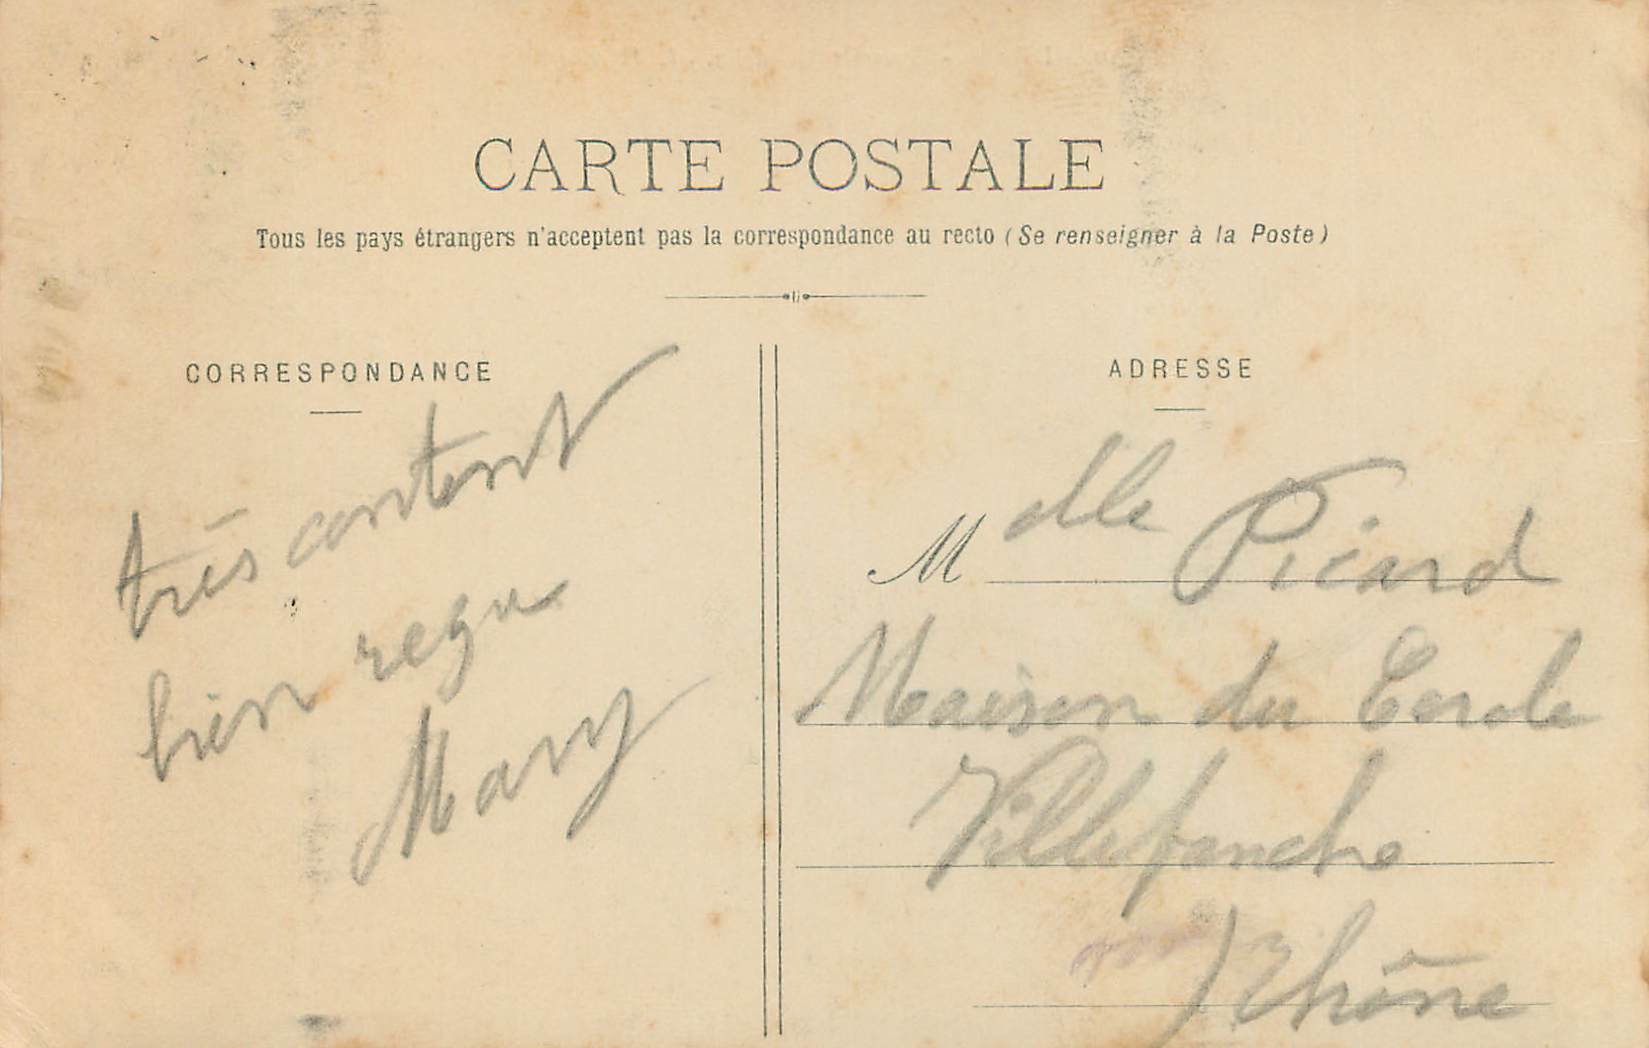 CARTE POSTALE
Tous les pays étrangers n'acceptent pas la correspondance au recto (Se renseigner à la Poste)
CORRESPONDANCE
très content
bien reçu
Mary
ADRESSE
M elle Picard
Maison du Cercle
Villefranche
Rhône